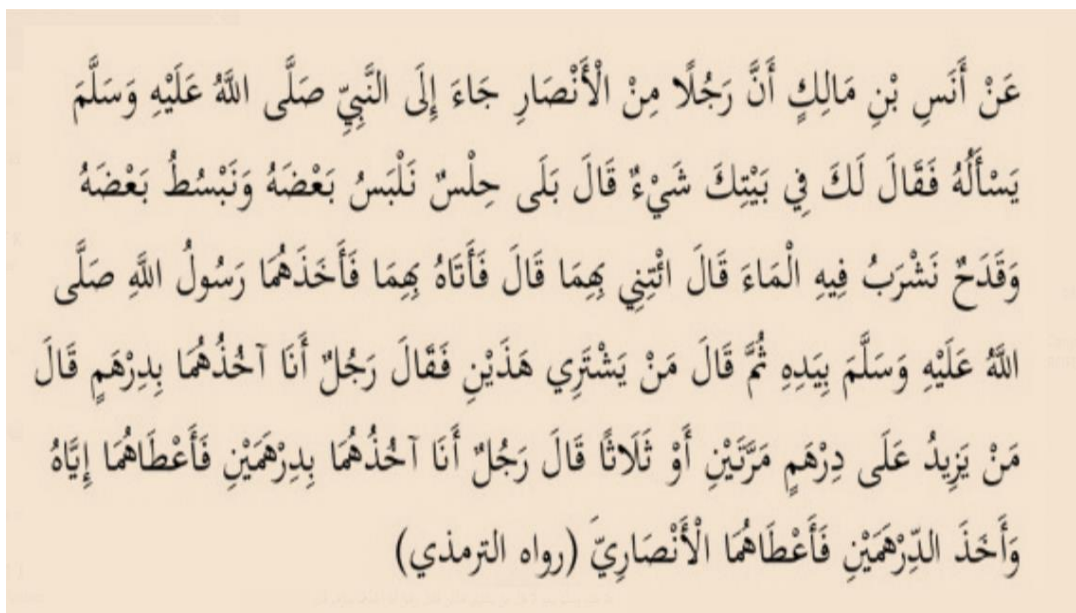 عَنْ أَنَسِ بْنِ مَالِكٍ أَنَّ رَجُلًا مِنْ الْأَنْصَارِ جَاءَ إِلَى النَّبِيِّ صَلَّى اللَّهُ عَلَيْهِ وَسَلَّمَ
يَسْأَلُهُ فَقَالَ لَكَ فِي بَيْتِكَ شَيْءٌ قَالَ بَلَى حِلْسٌ نَلْبَسُ بَعْضَهُ وَنَبْسُطُ بَعْضَهُ
وَقَدَحٌ نَشْرَبُ فِيهِ الْمَاءَ قَالَ ائْتِنِي بِهِمَا قَالَ فَأَتَاهُ بِهِمَا فَأَخَذَهُمَا رَسُولُ اللَّهِ صَلَّى
اللَّهُ عَلَيْهِ وَسَلَّمَ بِيَدِهِ ثُمَّ قَالَ مَنْ يَشْتَرِي هَذَيْنِ فَقَالَ رَجُلٌ أَنَا آخُذُهُمَا بِدِرْهَمٍ قَالَ
مَنْ يَزِيدُ عَلَى دِرْهَمٍ مَرَّتَيْنِ أَوْ ثَلَاثًا قَالَ رَجُلٌ أَنَا آخُذُهُمَا بِدِرْهَمَيْنِ فَأَعْطَاهُمَا إِيَّاهُ
وَأَخَذَ الدِّرْهَمَيْنِ فَأَعْطَاهُمَا الْأَنْصَارِيَّ (رواه الترمذي)